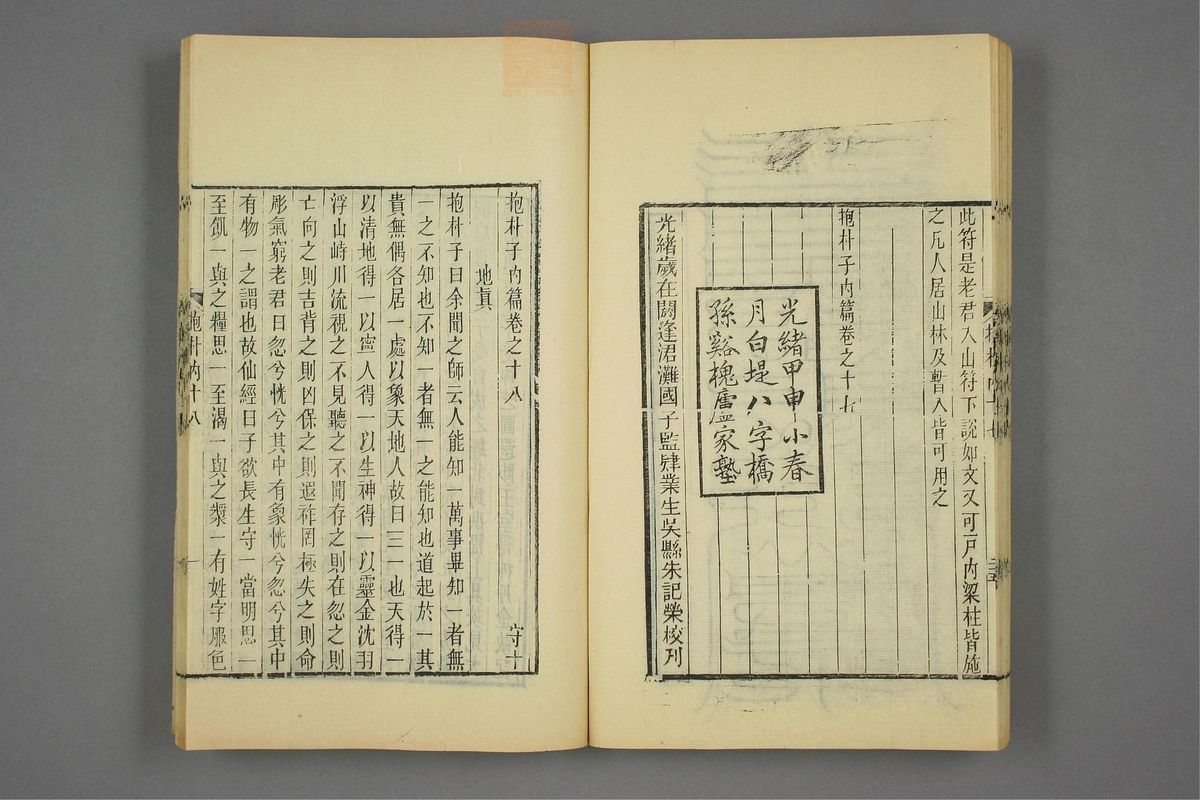 此符是老君入山符下說如文又可戸內梁柱皆施
之凡人居山林及暫入皆可用之
抱朴子內篇卷之十七
光緒甲申小春
月白堤八字橋
孫谿槐廬家塾
光緒歲在閼逢涒灘國子監肄業生吳縣朱記榮校刋
抱朴子內篇卷之十八 守十
地眞
抱朴子曰余聞之師云人能知一萬事畢知一者無
一之不知也不知一者無一之能知也道起於一其
貴無偶各居一處以象天地人故曰三一也天得一
以清地得一以寧人得一以生神得一以靈金沈羽
浮山峙川流視之不見聽之不聞存之則在忽之則
亡向之則吉背之則凶保之則遐祚罔極失之則命
彫氣窮老君曰忽兮恍兮其中有象恍兮忽兮其中
有物一之謂也故仙經曰子欲長生守一當明思一
至飢一與之糧思一至渴一與之漿一有姓字服色
抱朴內十八 一